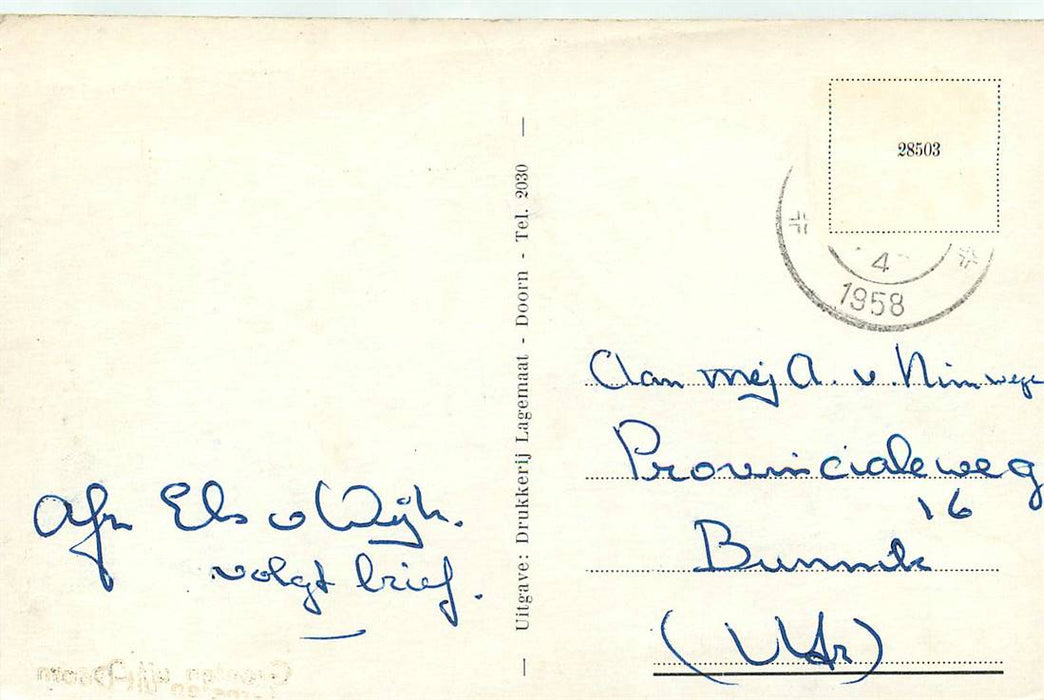 28503
4
1958
Uitgave: Drukkerij Lagemaat - Doorn - Tel. 2030
Aan mej A. v. Nimwege
Provincialeweg
16
Bunnik
(Utr)
Afz Els v Wijk.
volgt brief.
Groeten uit Doorn